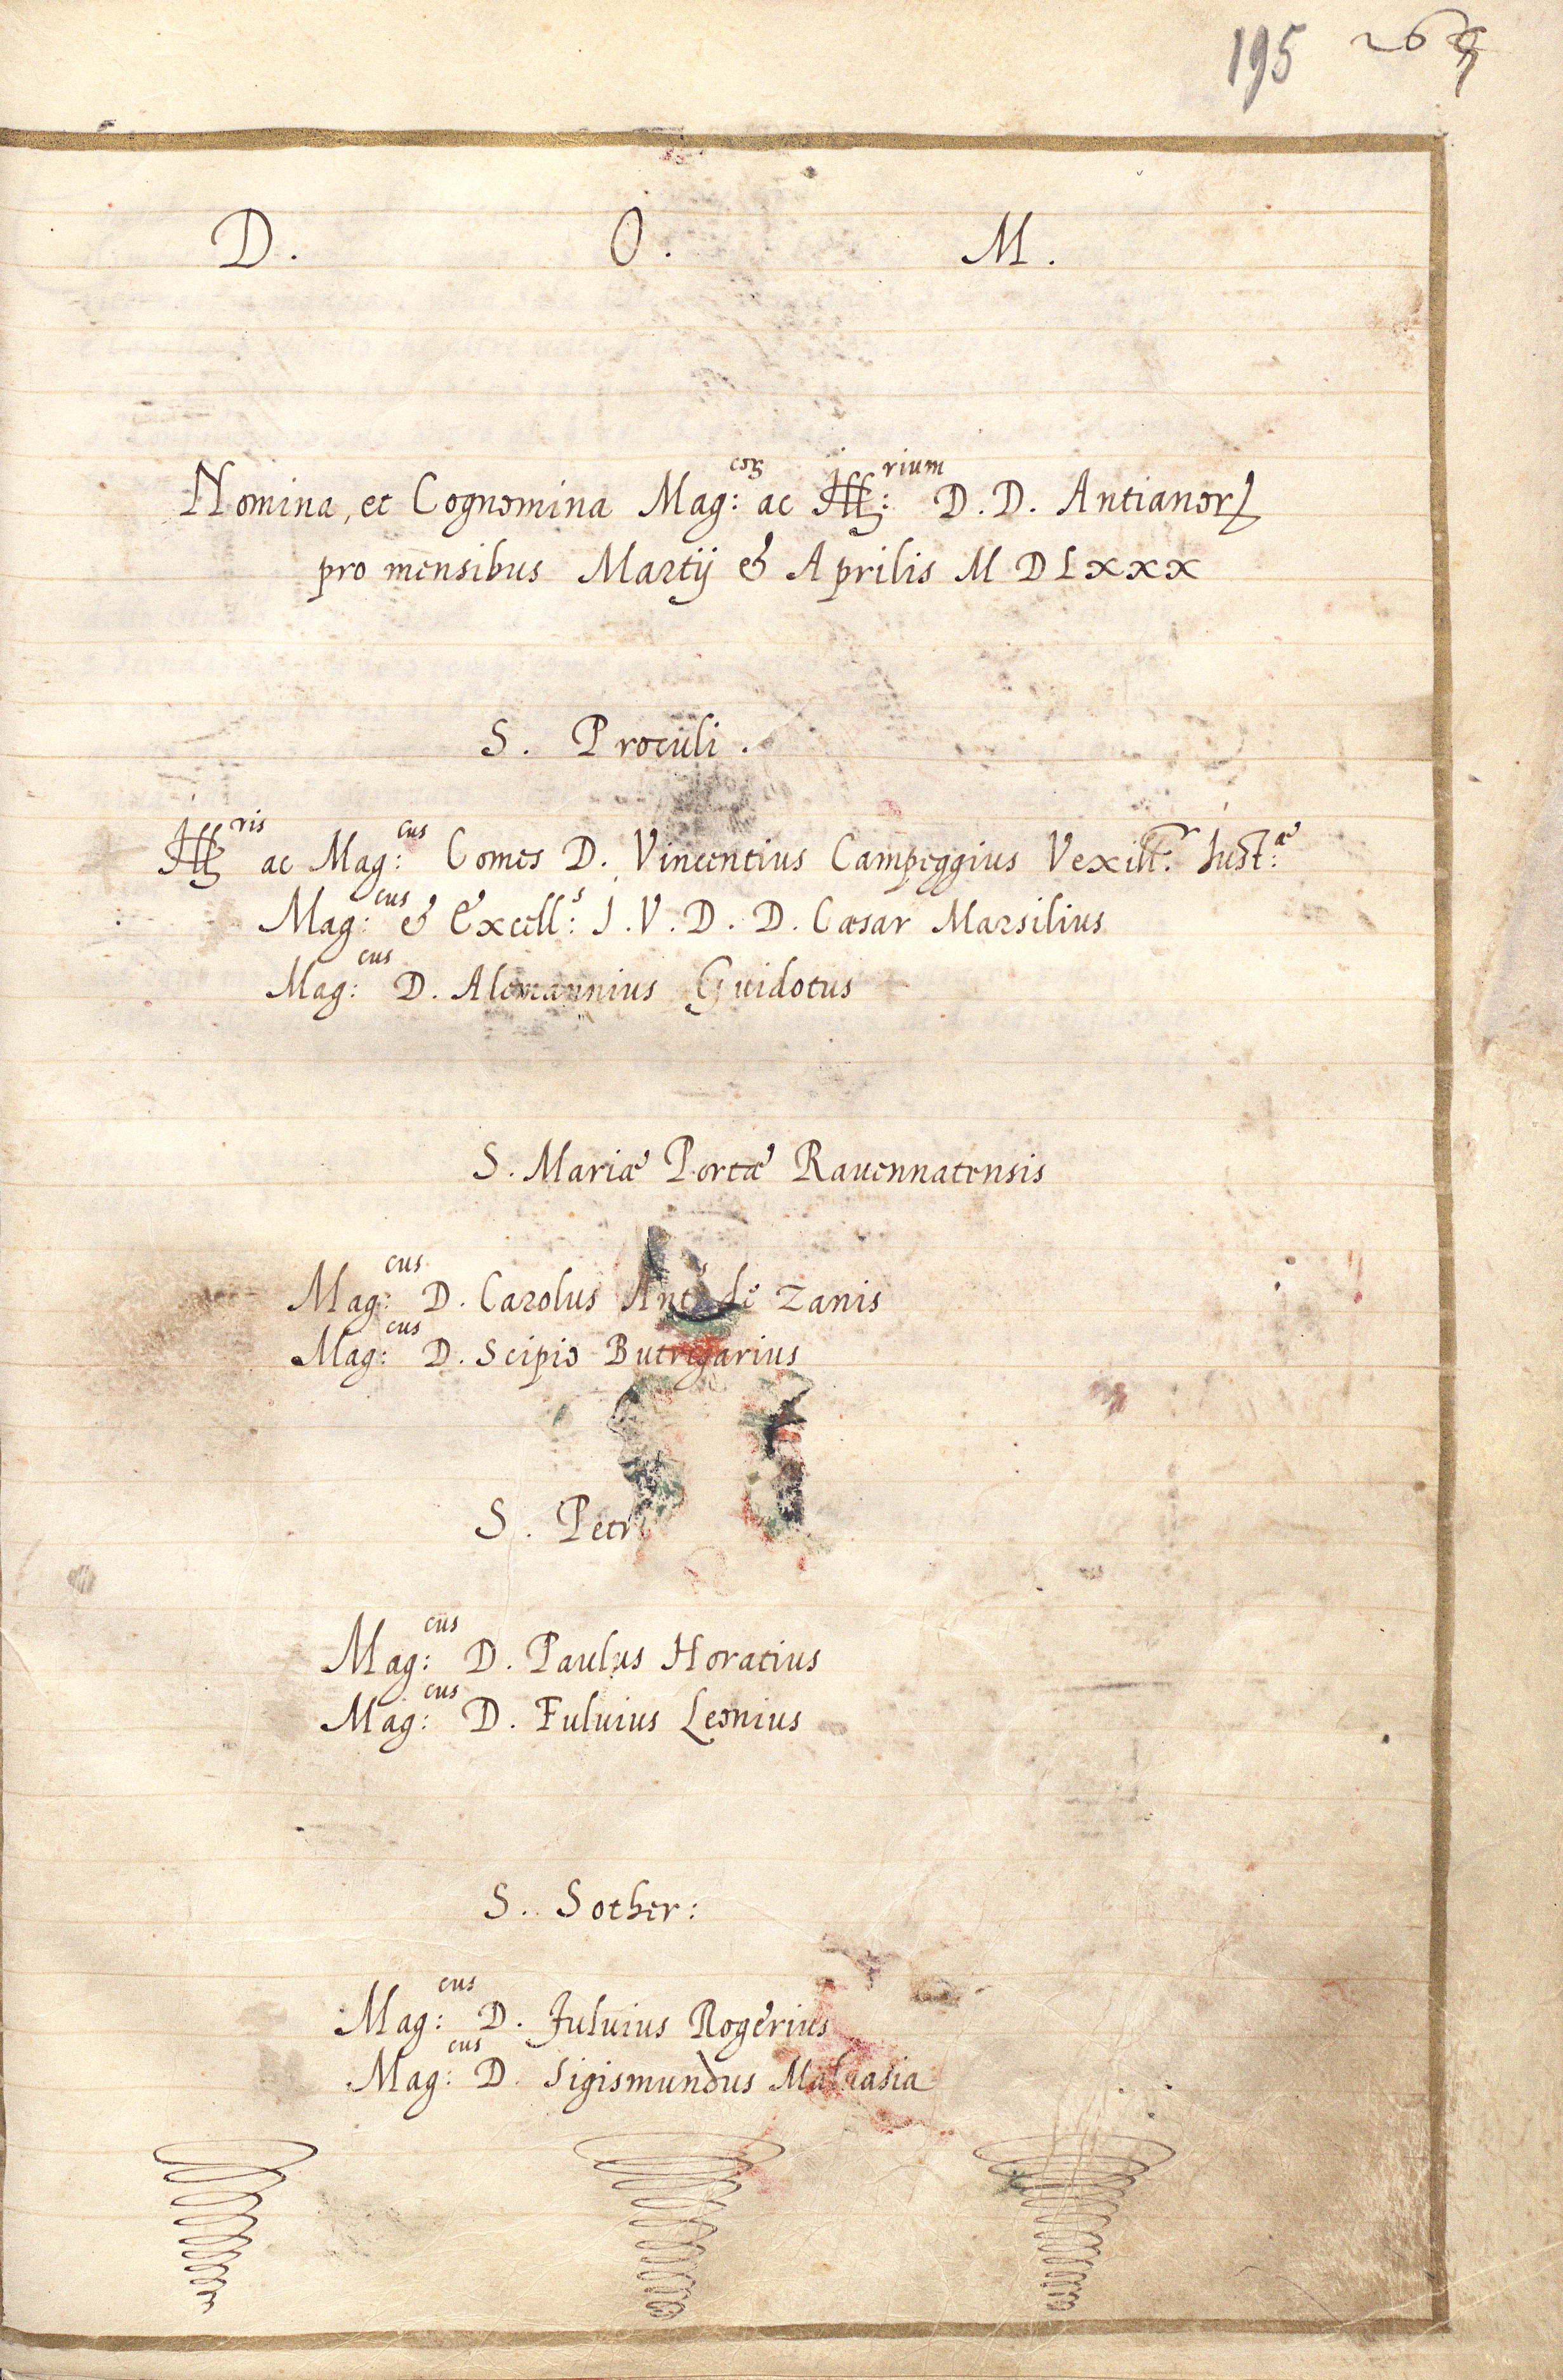 195 265
D. O. M.
Nomina, et Cognomina Mag:coꝝ ac Ill:rium D. D. Antianorꝝ
pro mensibus Martij & Aprilis M D L x x x
S. Proculi.
Illris ac Mag:cus Comes D. Vincentius Campeggius Vexill.r Iust:æ
Mag:cus & Excell:s I. V. D. D. Cæsar Marsilius
Mag:cus D. Alemannius Guidotus
S. Mariæ Portæ Rauennatensis
Mag:cus D. Carolus Ant:s de Zanis
Mag:cus D. Scipio Butrigarius
S. Petri
Mag:cus D. Paulus Horatius
Mag:cus D. Fuluius Leonius
S. Sother:
Mag:cus D. Fuluius Rogerius
Mag:cus D. Sigismundus Maluasia